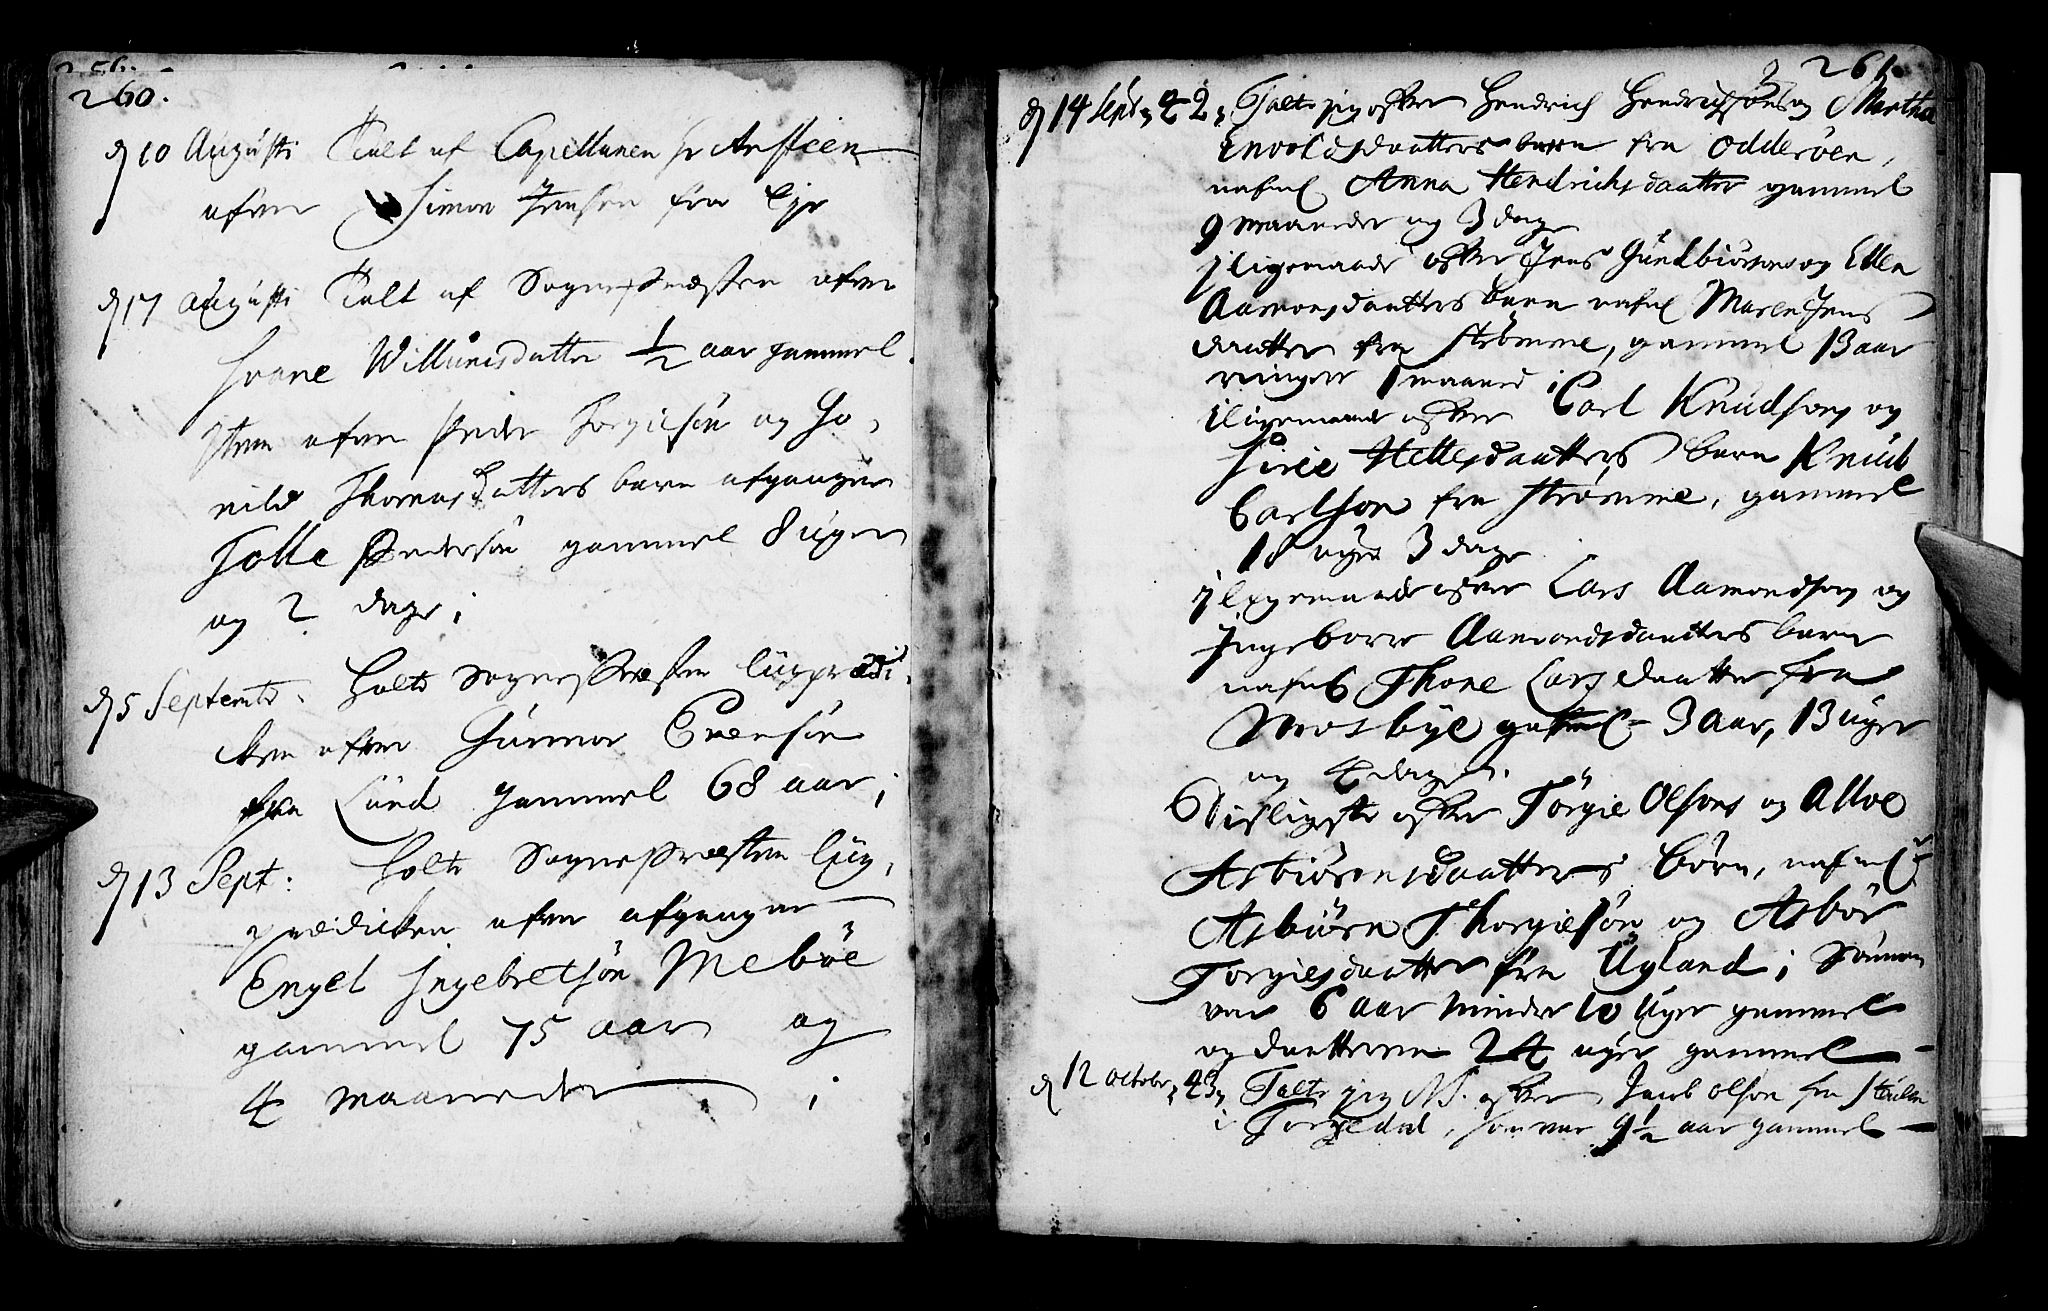 260.
d 10 Augusti Talt af Capellanen hr
ofver Simon Jensen fra Eje
d 17 Augusti Talt af Sognepræsten ofver
Willumsdatter ½ aar gammel.
Item ofver Peder Torgiesön og Go,
nild Thomasdatters barn afgangen
Tolle Pedersön gammel 8 uger
og 2 dage;
d 5 Septemb: holte Sognepræsten liigprædi,
ken ofver Gunnor Evensön
fra Lund gammel 68 aar;
d 13 Sept: holte Sognepræsten liig,
prædicken ofver afgangen
Engel Ingebretsön Meböe
gammel 75 aar og
4 maaneder ;
261.
d 14 Sept, 42, Talte jeg ofver Hendrich Hendrichsöns og Martha
Envoldsdaatters barn fra Odderöen,
nafnl Anna Hendrichsdaatter gammel
9 maaneder og 3 dage
jligemaade ofver Jens Gundbiörsens og Ellen
Aamonsdaatters barn nafnl Maren Jens
daatter fra Strömme, gammel 13 aar
ringere 1 maaned;
iligemaade ofver Carl Knudsons og
Siree Helledaatters barn Knud
Carlson fra Strömme, gammel
18 uger 3 dage
jligemaade ofver Lars Aamondsons og
Ingeborre Aamondsdaatters barn
nafnl Thone Larsdaatter fra
Mosbye gaml 3 aar, 13 uger
og 4 dage.
Disligeste ofver Törgie Olsons og Alloe
Asbiörensdaatters börn, nafnl:
Asbiörn Thorgiesön og Asbör
Torgiesdaatter fra Uyland; Sönnen
var 6 aar minder 10 Uger gammel
og daatteren 24 uger gammel
d 12 octobr, 43, Talte jeg NB. ofver Jacob Olson fra
i Torredal, som var 9½ aar gammel